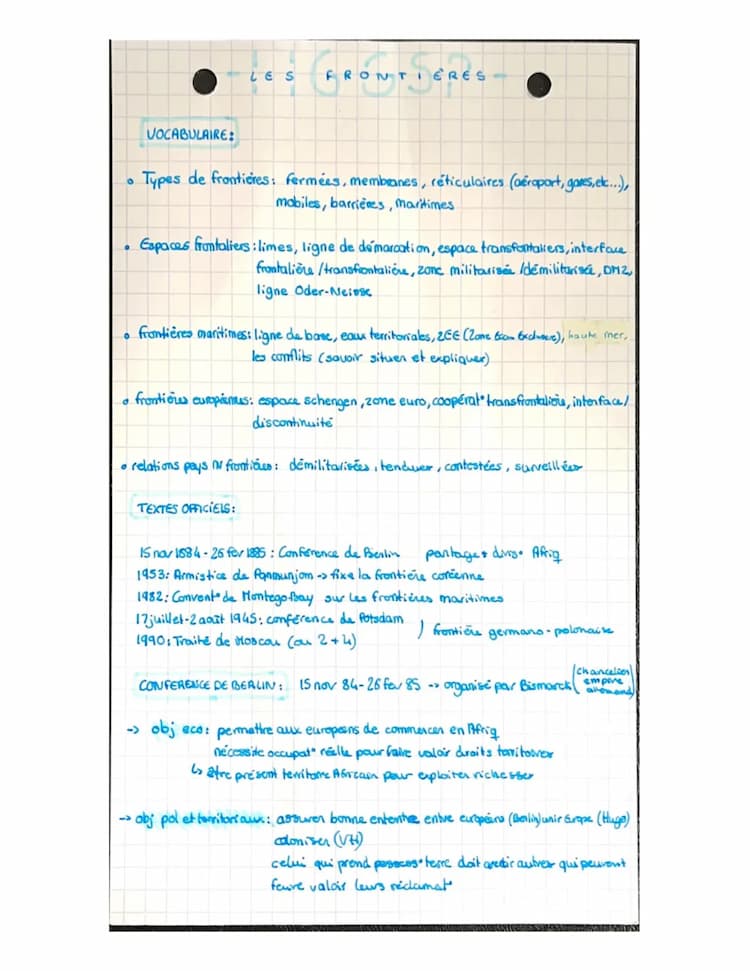 -HGGSP-
LES FRONTIÈRES
VOCABULAIRE:
• Types de frontières: fermées, membranes, réticulaires (aéroport, gares, etc...),
mobiles, barrières, maritimes
• Espaces frontaliers: limes, ligne de démarcation, espace transfontaliers, interface
frontalière/transfrontalière, zone militarisée/démilitarisée, DMZ,
ligne Oder-Neisse
• frontières maritimes: ligne de base, eaux territoriales, ZEE (Zone Écon Exclusive), haute mer,
les conflits (savoir situer et expliquer)
• frontières européennes: espace schengen, zone euro, coopérat° transfrontalière, interface/
discontinuité
• relations pays frontières: démilitarisées, tendues, contestées, surveillées
TEXTES OFFICIELS:
15 nov 1884 - 26 fev 1885: Conférence de Berlin partage + divis° Afriq
1953: Armistice de Panmunjom -> fixe la frontière coréenne
1982: Convent° de Montego Bay sur les frontières maritimes
17 juillet - 2 août 1945: conférence de Potsdam
) frontière germano-polonaise
1990: Traité de Moscou (ou 2+4)
CONFERENCE DE BERLIN: 15 nov 84 - 26 fev 85 -> organisé par Bismarck (chancelier
empire
allemand)
-> obj eco: permettre aux européens de commercer en Afriq
nécessite occupat° réelle pour faire valoir droits territoriaux
↳ être présent territoire Africain pour exploiter richesses
-> obj pol et territoriaux: assurer bonne entente entre européens (Berlin) unir Europe (Hugo)
coloniser (VH)
celui qui prend possess° terre doit avertir autres qui peuvent
faire valoir leurs réclamat°